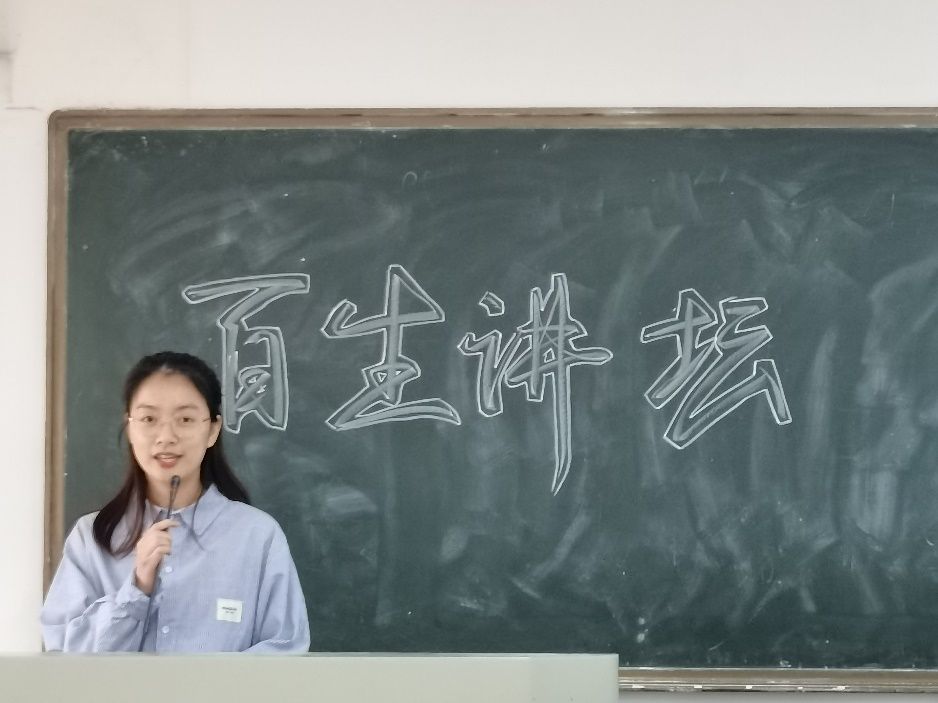 百生讲坛